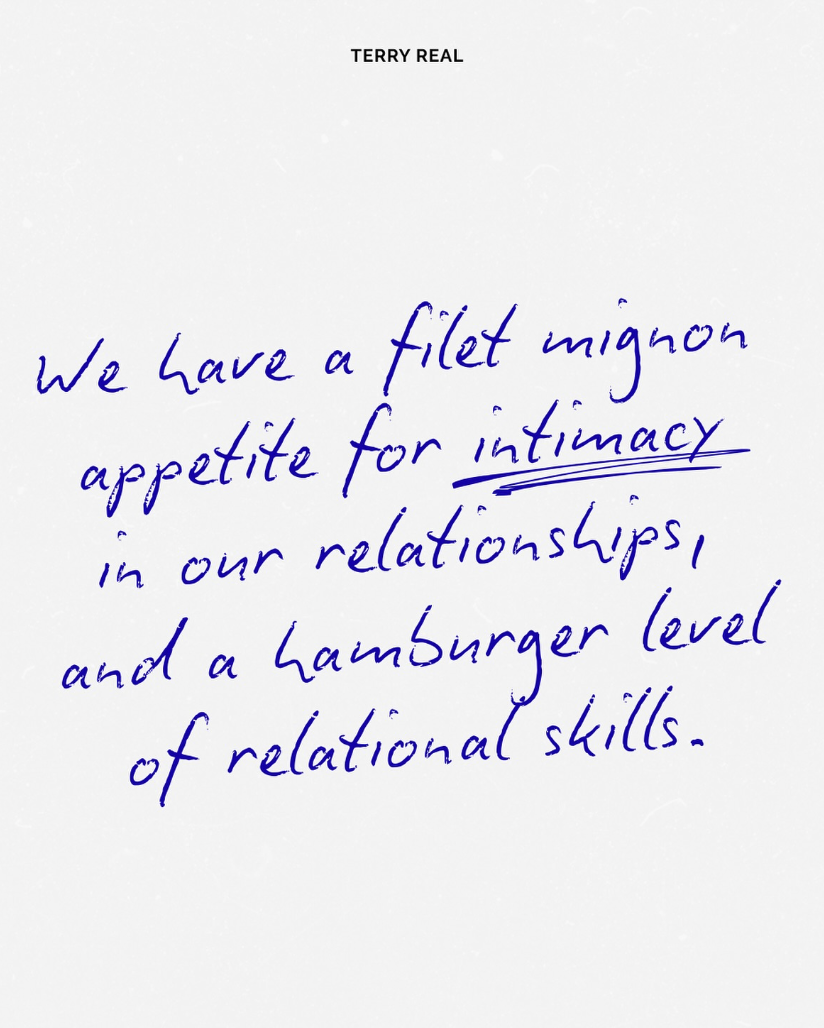 TERRY REAL
We have a filet mignon
appetite for intimacy
in our relationships,
and a hamburger level
of relational skills.